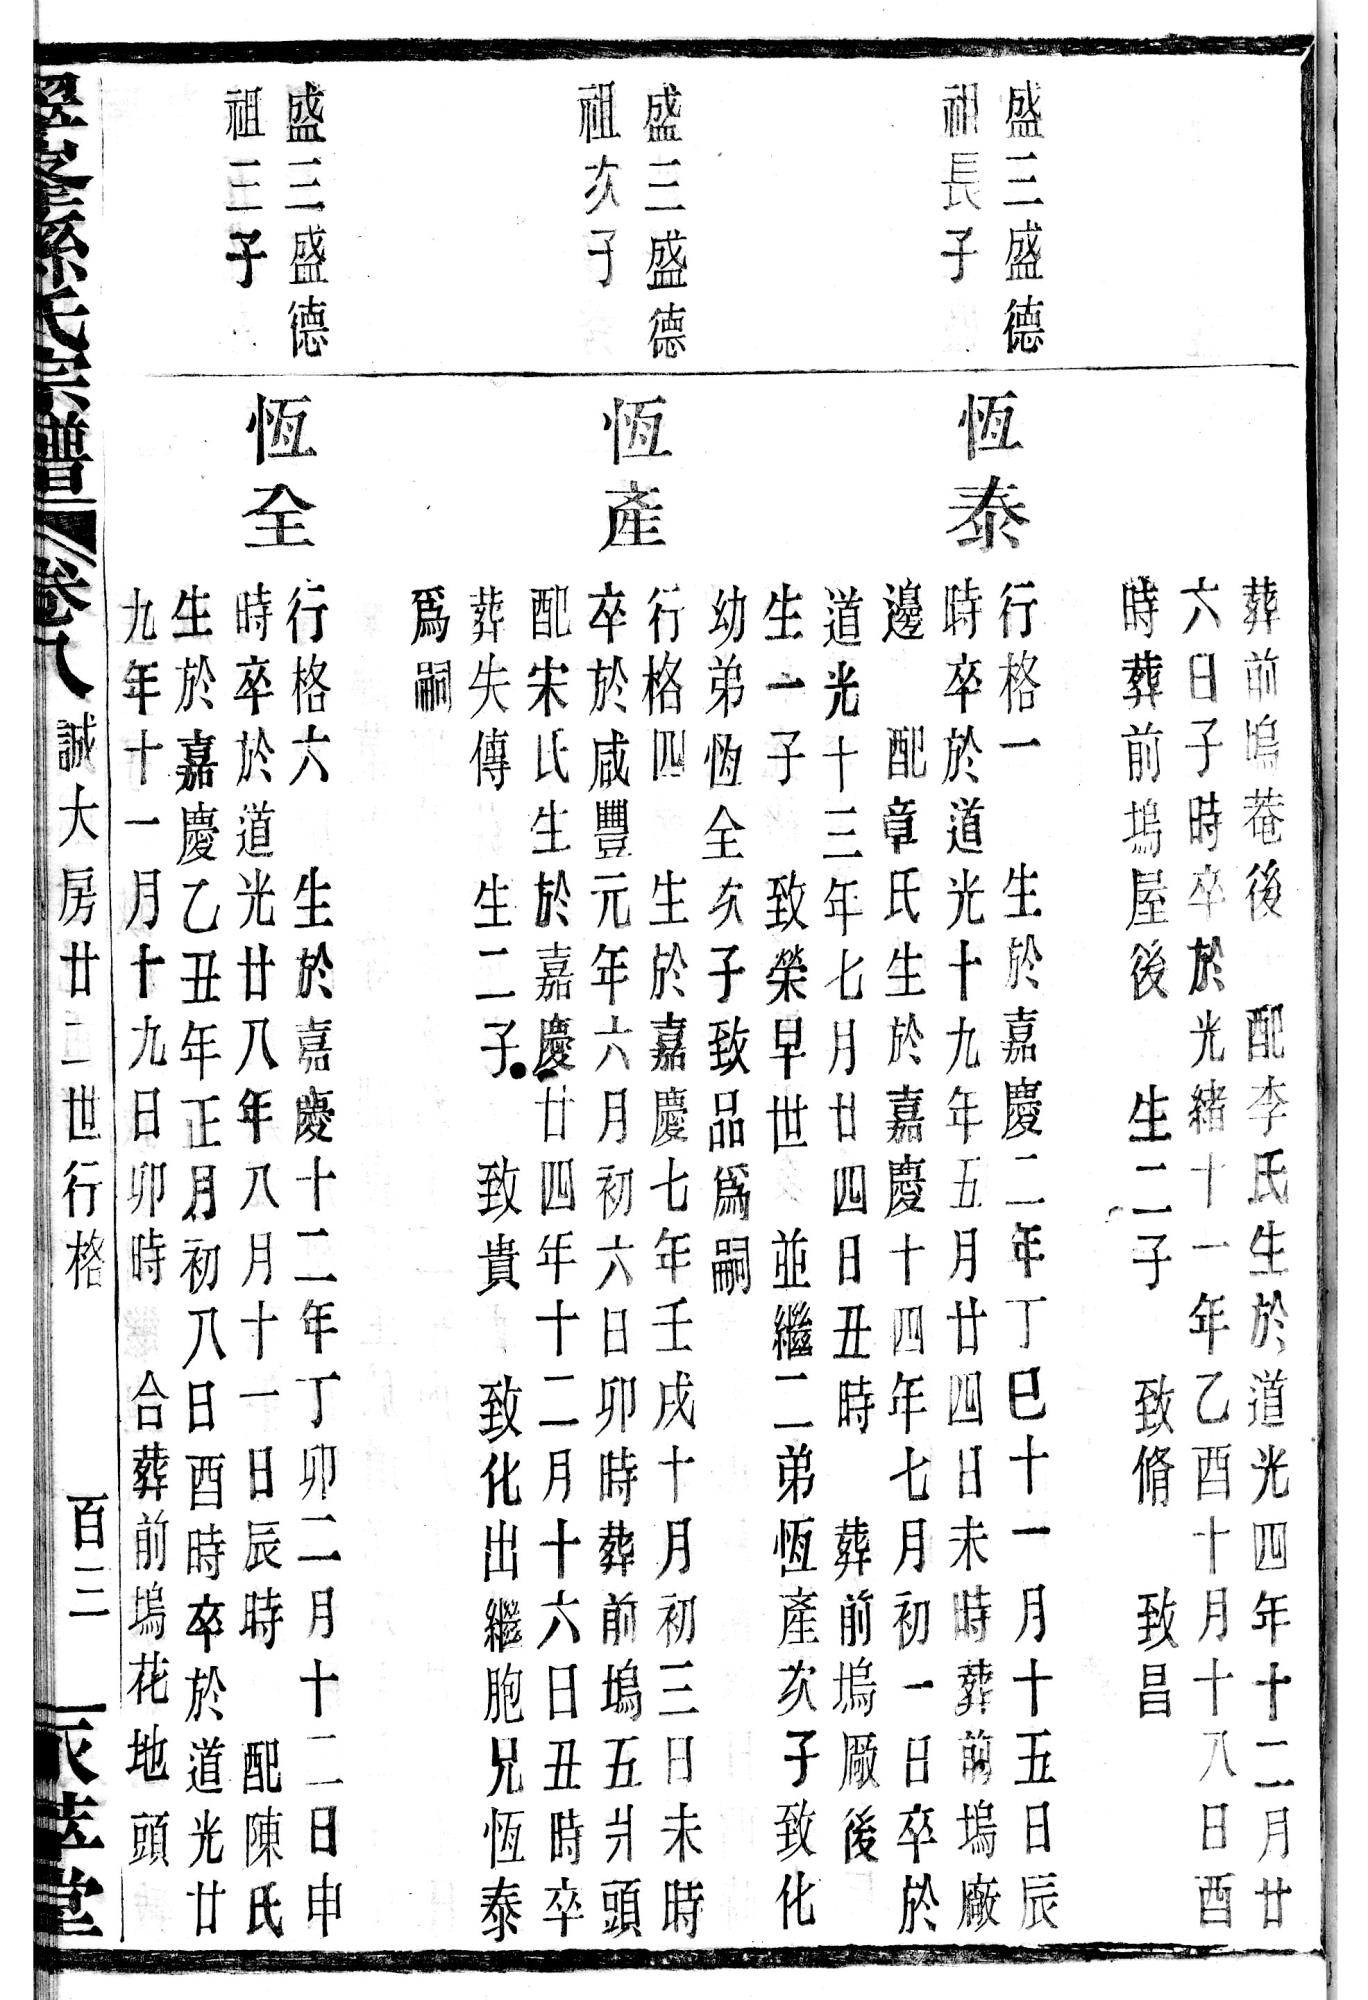 葬前塢菴後　配李氏生於道光四年十二月廿
六日子時卒於光緒十一年乙酉十月十八日酉
時葬前塢屋後　生二子　致脩　致昌
盛三盛德
祖長子
恆泰
行格一　生於嘉慶二年丁巳十一月十五日辰
時卒於道光十九年五月廿四日未時葬前塢廠
邊　配章氏生於嘉慶十四年七月初一日卒於
道光十三年七月廿四日丑時　葬前塢廠後
生一子　致榮早世　並繼二弟恆產次子致化
幼弟恆全次子致品爲嗣
盛三盛德
祖次子
恆產
行格四　生於嘉慶七年壬戌十月初三日未時
卒於咸豐元年六月初六日卯時葬前塢五爿頭
配宋氏生於嘉慶廿四年十二月十六日丑時卒
葬失傳　生二子　致貴　致化出繼胞兄恆泰
爲嗣
盛三盛德
祖三子
恆全
行格六　生於嘉慶十二年丁卯二月十二日申
時卒於道光廿八年八月十一日辰時　配陳氏
生於嘉慶乙丑年正月初八日酉時卒於道光廿
九年十一月十九日卯時　合葬前塢花地頭
孫氏宗譜　卷八　誠大房廿二世行格　百三　堂